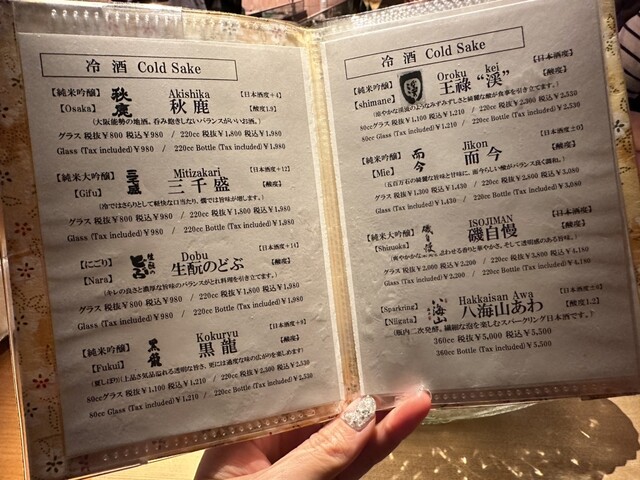 冷酒 Cold Sake
【純米吟醸】 秋鹿 Akishika 【日本酒度+4】
【Osaka】 秋鹿 【酸度1.9】
(大阪能勢の地酒。呑み飽きしないバランスがいいお酒。)
グラス 税抜¥800 税込¥980 / 220cc 税抜¥1,800 税込¥1,980
Glass (Tax included)¥980 / 220cc Bottle (Tax included)¥1,980
【純米大吟醸】 三千盛 Mitizakari 【日本酒度+12】
【Gifu】 三千盛 【酸度】
(冷ではさらりとして軽快な口当たり、燗では旨味が増します。)
グラス 税抜¥800 税込¥980 / 220cc 税抜¥1,800 税込¥1,980
Glass (Tax included)¥980 / 220cc Bottle (Tax included)¥1,980
【にごり】 生酛のどぶ Dobu 【日本酒度+14】
【Nara】 生酛のどぶ 【酸度】
(キレの良さと濃厚な旨味のバランスがとれ料理を引き立てます。)
グラス 税抜¥800 税込¥980 / 220cc 税抜¥1,800 税込¥1,980
Glass (Tax included)¥980 / 220cc Bottle (Tax included)¥1,980
【純米吟醸】 黒龍 Kokuryu 【日本酒度+8】
【Fukui】 黒龍 【酸度】
80ccグラス 税抜¥1,100 税込¥1,210 / 220cc 税抜¥2,300 税込¥2,530
80cc Glass (Tax included)¥1,210 / 220cc Bottle (Tax included)¥2,530
冷酒 Cold Sake
【純米吟醸】 渓 Oroku kei 【日本酒度】
【shimane】 王祿 “渓” 【酸度】
80ccグラス 税抜¥1,100 税込¥1,210 / 220cc 税抜¥2,300 税込¥2,530
80cc Glass (Tax included)¥1,210 / 220cc Bottle (Tax included)¥2,530
【純米吟醸】 而今 Jikon 【日本酒度±0】
【Mie】 而今 【酸度】
グラス 税抜¥1,300 税込¥1,430 / 220cc 税抜¥2,800 税込¥3,080
Glass (Tax included)¥1,430 / 220cc Bottle (Tax included)¥3,080
【純米大吟醸】 磯自慢 ISOJIMAN 【日本酒度】
【Shizuoka】 磯自慢 【酸度】
グラス 税抜¥2,000 税込¥2,200 / 220cc 税抜¥3,800 税込¥4,180
Glass (Tax included)¥2,200 / 220cc Bottle (Tax included)¥4,180
【Sparkring】 八海山 Hakkaisan Awa 【日本酒度
【Niigata】 八海山あわ 【酸度1.2】
(瓶内二次発酵。繊細な泡を楽しむスパークリング日本酒です。)
360cc 税抜¥5,000 税込¥5,500
360cc Bottle (Tax included)¥5,500